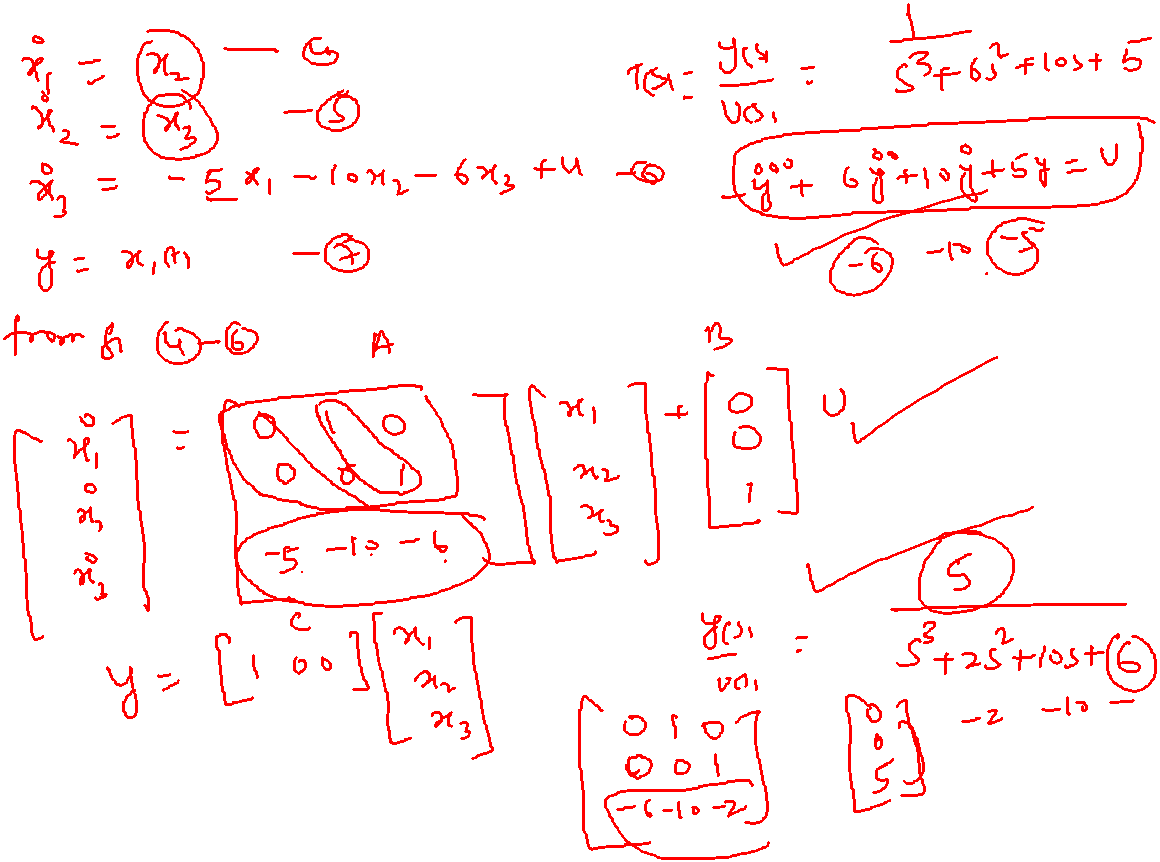 ẋ₁ = x₂ — ④
ẋ₂ = x₃ — ⑤
ẋ₃ = -5x₁ - 10x₂ - 6x₃ + u — ⑥
y = x₁(t) — ⑦
T(s) = Y(s)/U(s) = 1/(s³+6s²+10s+5)
y⃛ + 6ÿ + 10ẏ + 5y = U
-6 -10 -5
from ④-⑥
A B
[ẋ₁ ẋ₂ ẋ₃] = [0 1 0
0 0 1
-5 -10 -6] [x₁ x₂ x₃] + [0 0 1] U
C
y = [1 0 0] [x₁ x₂ x₃]
Y(s)/U(s) = 5/(s³+2s²+10s+6)
-2 -10 -
[0 1 0
0 0 1
-6 -10 -2] [0 0 5]